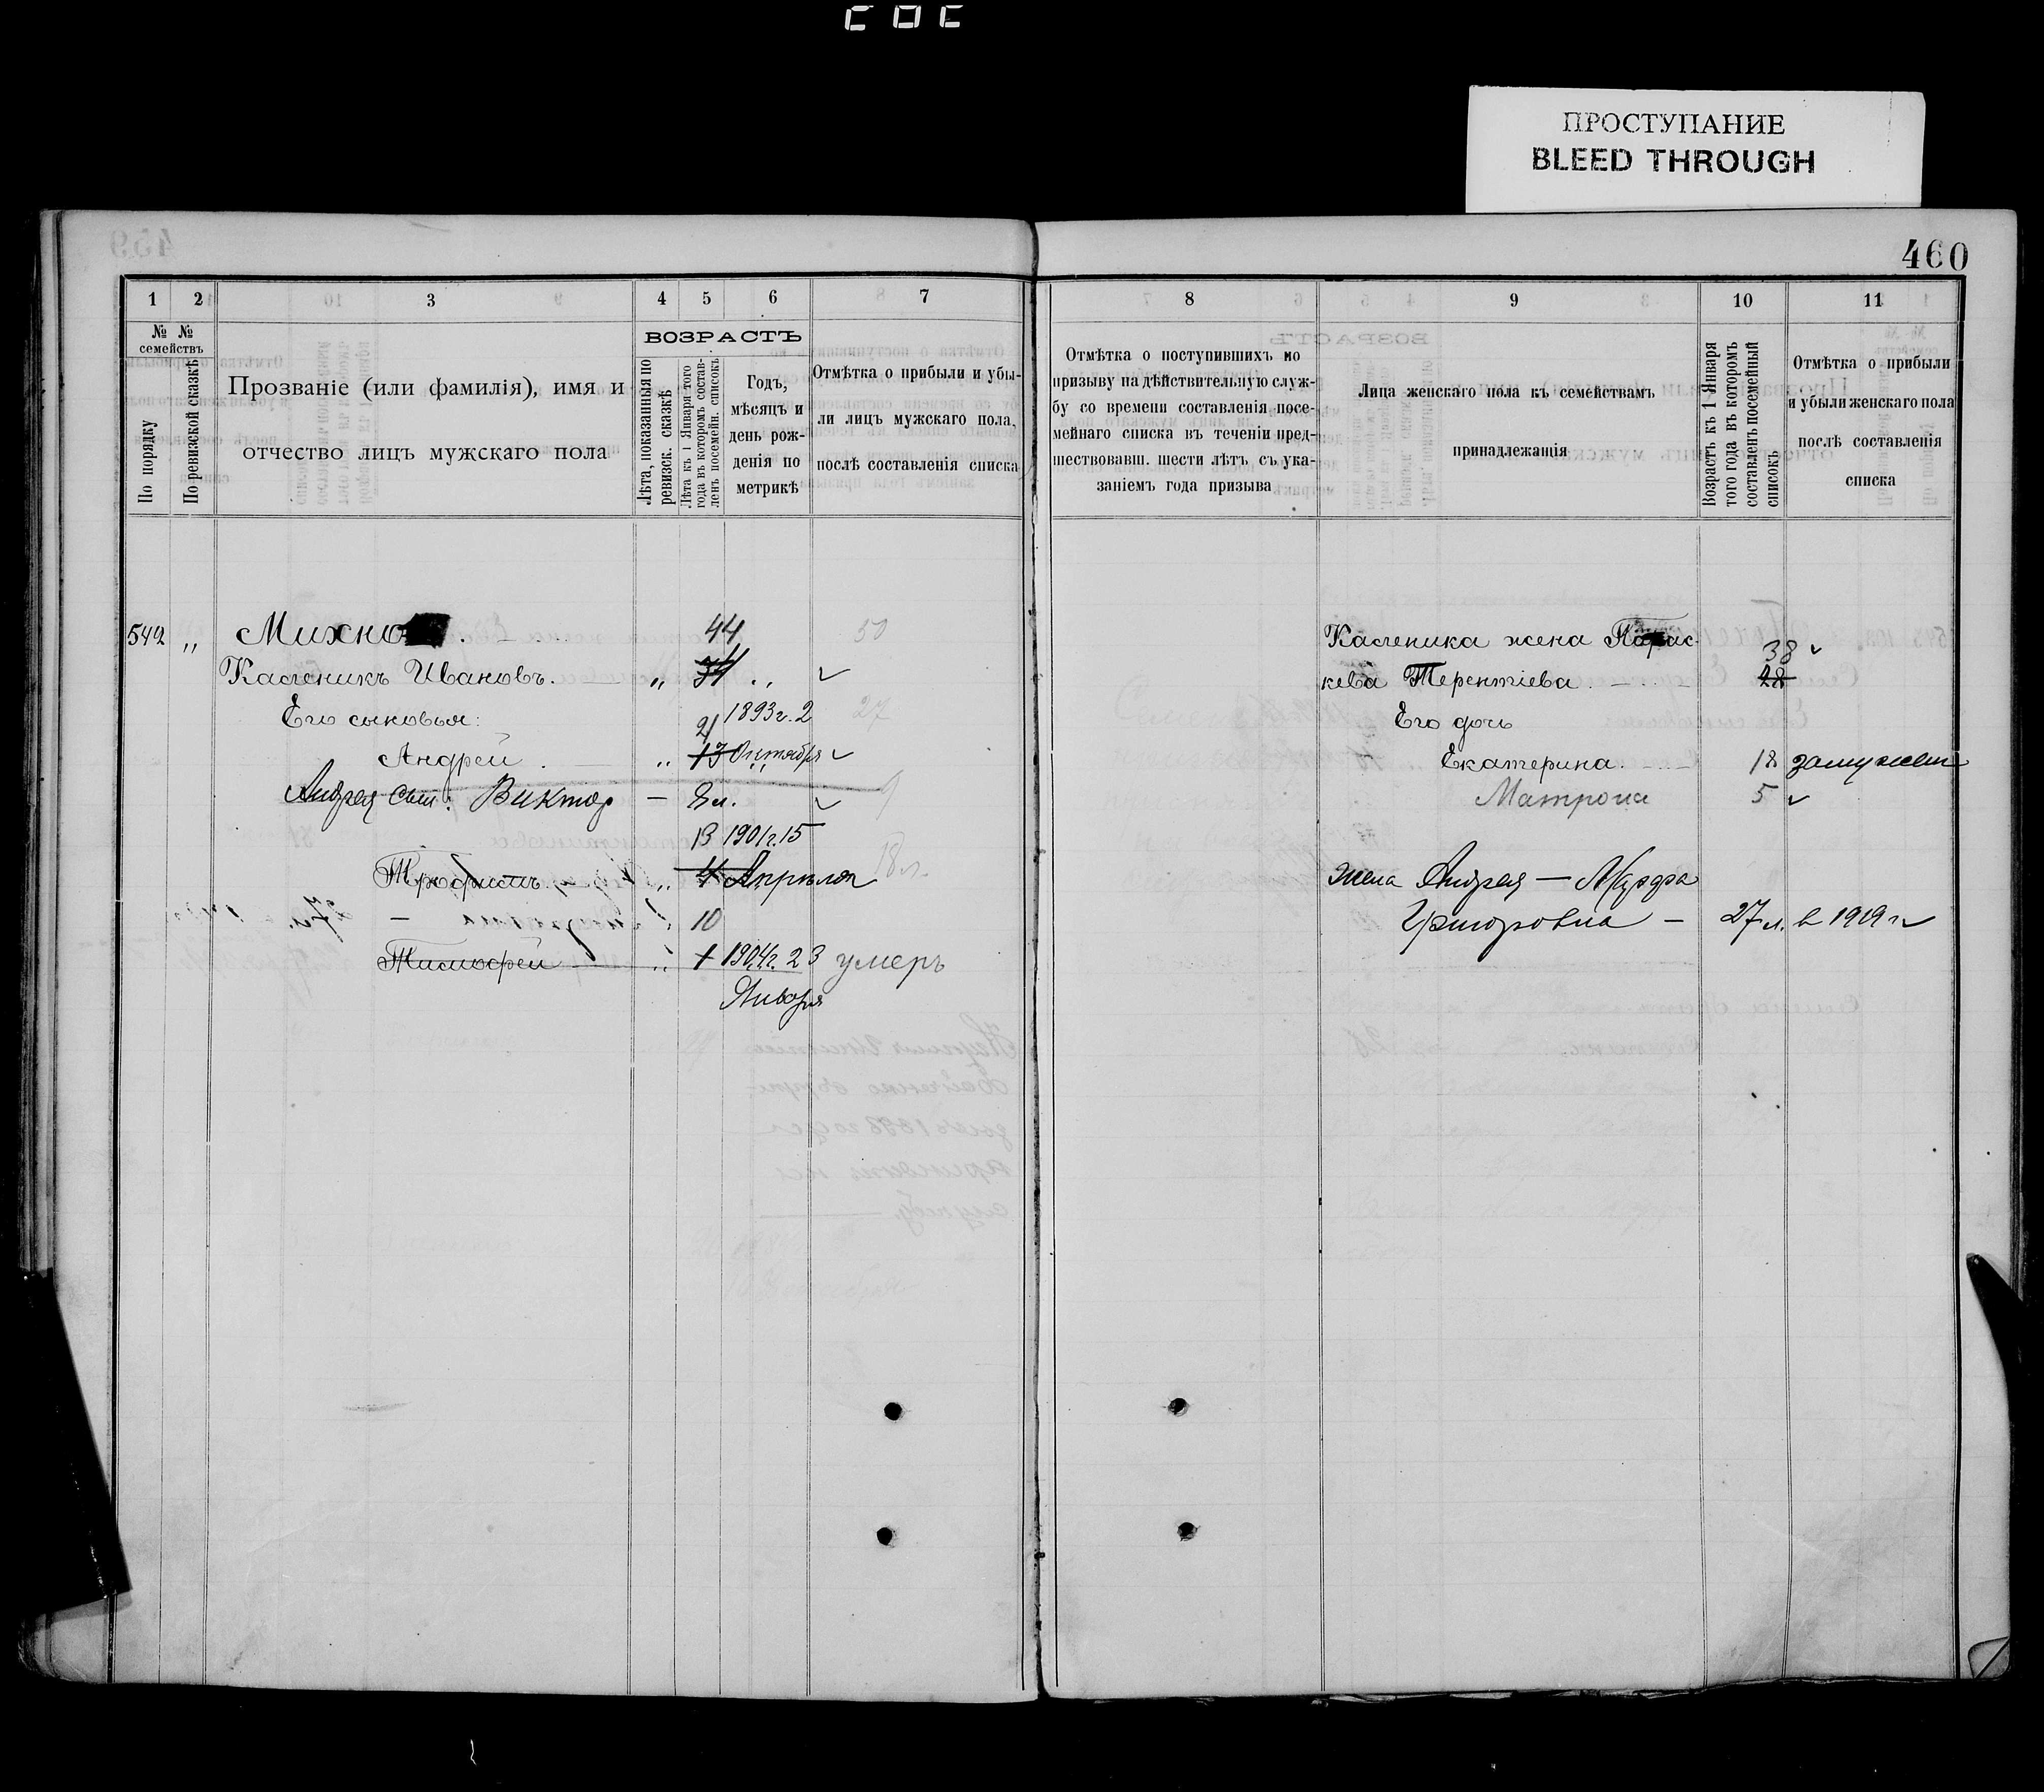 ПРОСТУПАНИЕ
BLEED THROUGH
460
1 2 3 4 5 6 7
№ № семействъ
По порядку
По ревизской сказкѣ
Прозваніе (или фамилія), имя и
отчество лицъ мужскаго пола
ВОЗРАСТЪ
Лѣта, показанныя по
ревизск. сказкѣ
Лѣта къ 1 Января того
года въ которомъ состав-
ленъ посемейн. списокъ
Годъ,
мѣсяцъ и
день рож-
денія по
метрикѣ
Отмѣтка о прибыли и убы-
ли лицъ мужскаго пола,
послѣ составленія списка
542 „ Михно 44 50
Каленикъ Ивановъ. „ 34 „
Его сыновья: 21 1893 г. 2 27
Андрей „ 13 Октября
Андрея сын: Виктор — 8 л. 9
13 1901 г. 15
„ 4 Апрѣля 18 л.
10
Тимофей „ 1 1904 г. 23 умеръ
Января
8 9 10 11
Отмѣтка о поступившихъ по
призыву на дѣйствительную служ-
бу со времени составленія посе-
мейнаго списка въ теченіи пред-
шествовавш. шести лѣтъ съ ука-
заніемъ года призыва
Лица женскаго пола къ семействамъ
принадлежащія
Возрастъ къ 1 Января
того года въ которомъ
составленъ посемейный
списокъ
Отмѣтка о прибыли
и убыли женскаго пола
послѣ составленія
списка
Каленика жена Парас-
38
кева Терентіева 28
Его дочь
Екатерина 12 замужем
Матрона 5
жена Андрея — Марфа
Григоровна — 27 л. в 1919 г.